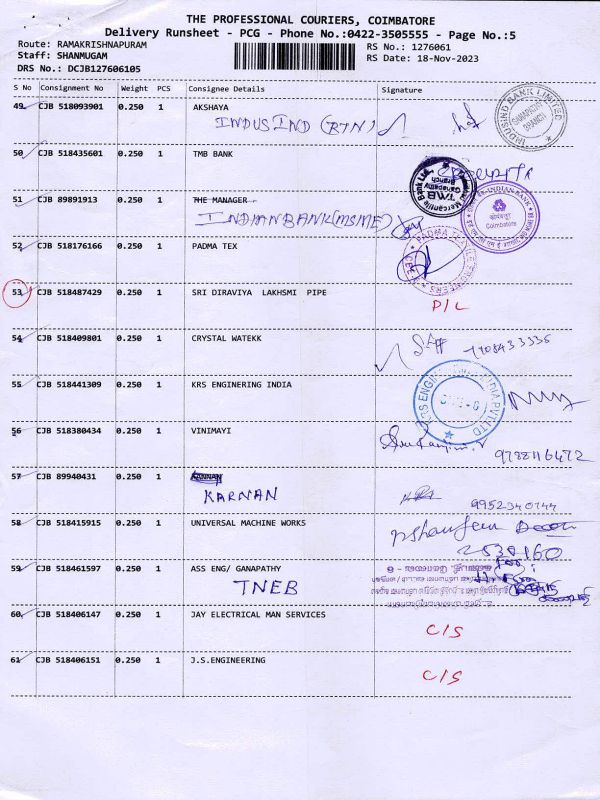 THE PROFESSIONAL COURIERS, COIMBATORE
Delivery Runsheet - PCG - Phone No.:0422-3505555 - Page No.:5
Route: RAMAKRISHNAPURAM RS No.: 1276061
Staff: SHANMUGAM RS Date: 18-Nov-2023
DRS No.: DCJB127606105
S No Consignment No Weight PCS Consignee Details Signature
49 CJB 518093901 0.250 1 AKSHAYA
INDUSIND (RTN)
INDUSIND BANK LIMITED GANAPATHY BRANCH
50 CJB 518435601 0.250 1 TMB BANK
Mercantile Bank Ltd. TMB Ganapathy Branch
51 CJB 89891913 0.250 1 THE MANAGER
INDIAN BANK (MSME)
INDIAN BANK Coimbatore
52 CJB 518176166 0.250 1 PADMA TEX
PADMA
53 CJB 518487429 0.250 1 SRI DIRAVIYA LAKHSMI PIPE
D/L
54 CJB 518409801 0.250 1 CRYSTAL WATEKK
55 CJB 518441309 0.250 1 KRS ENGINERING INDIA
KRS ENGINEERING INDIA PVT LTD
56 CJB 518380434 0.250 1 VINIMAYI
9788116472
57 CJB 89940431 0.250 1 KANNAN
KARNAN
9952340744
58 CJB 518415915 0.250 1 UNIVERSAL MACHINE WORKS
2530160
59 CJB 518461597 0.250 1 ASS ENG/ GANAPATHY
TNEB
60 CJB 518406147 0.250 1 JAY ELECTRICAL MAN SERVICES
C/S
61 CJB 518406151 0.250 1 J.S.ENGINEERING
C/S